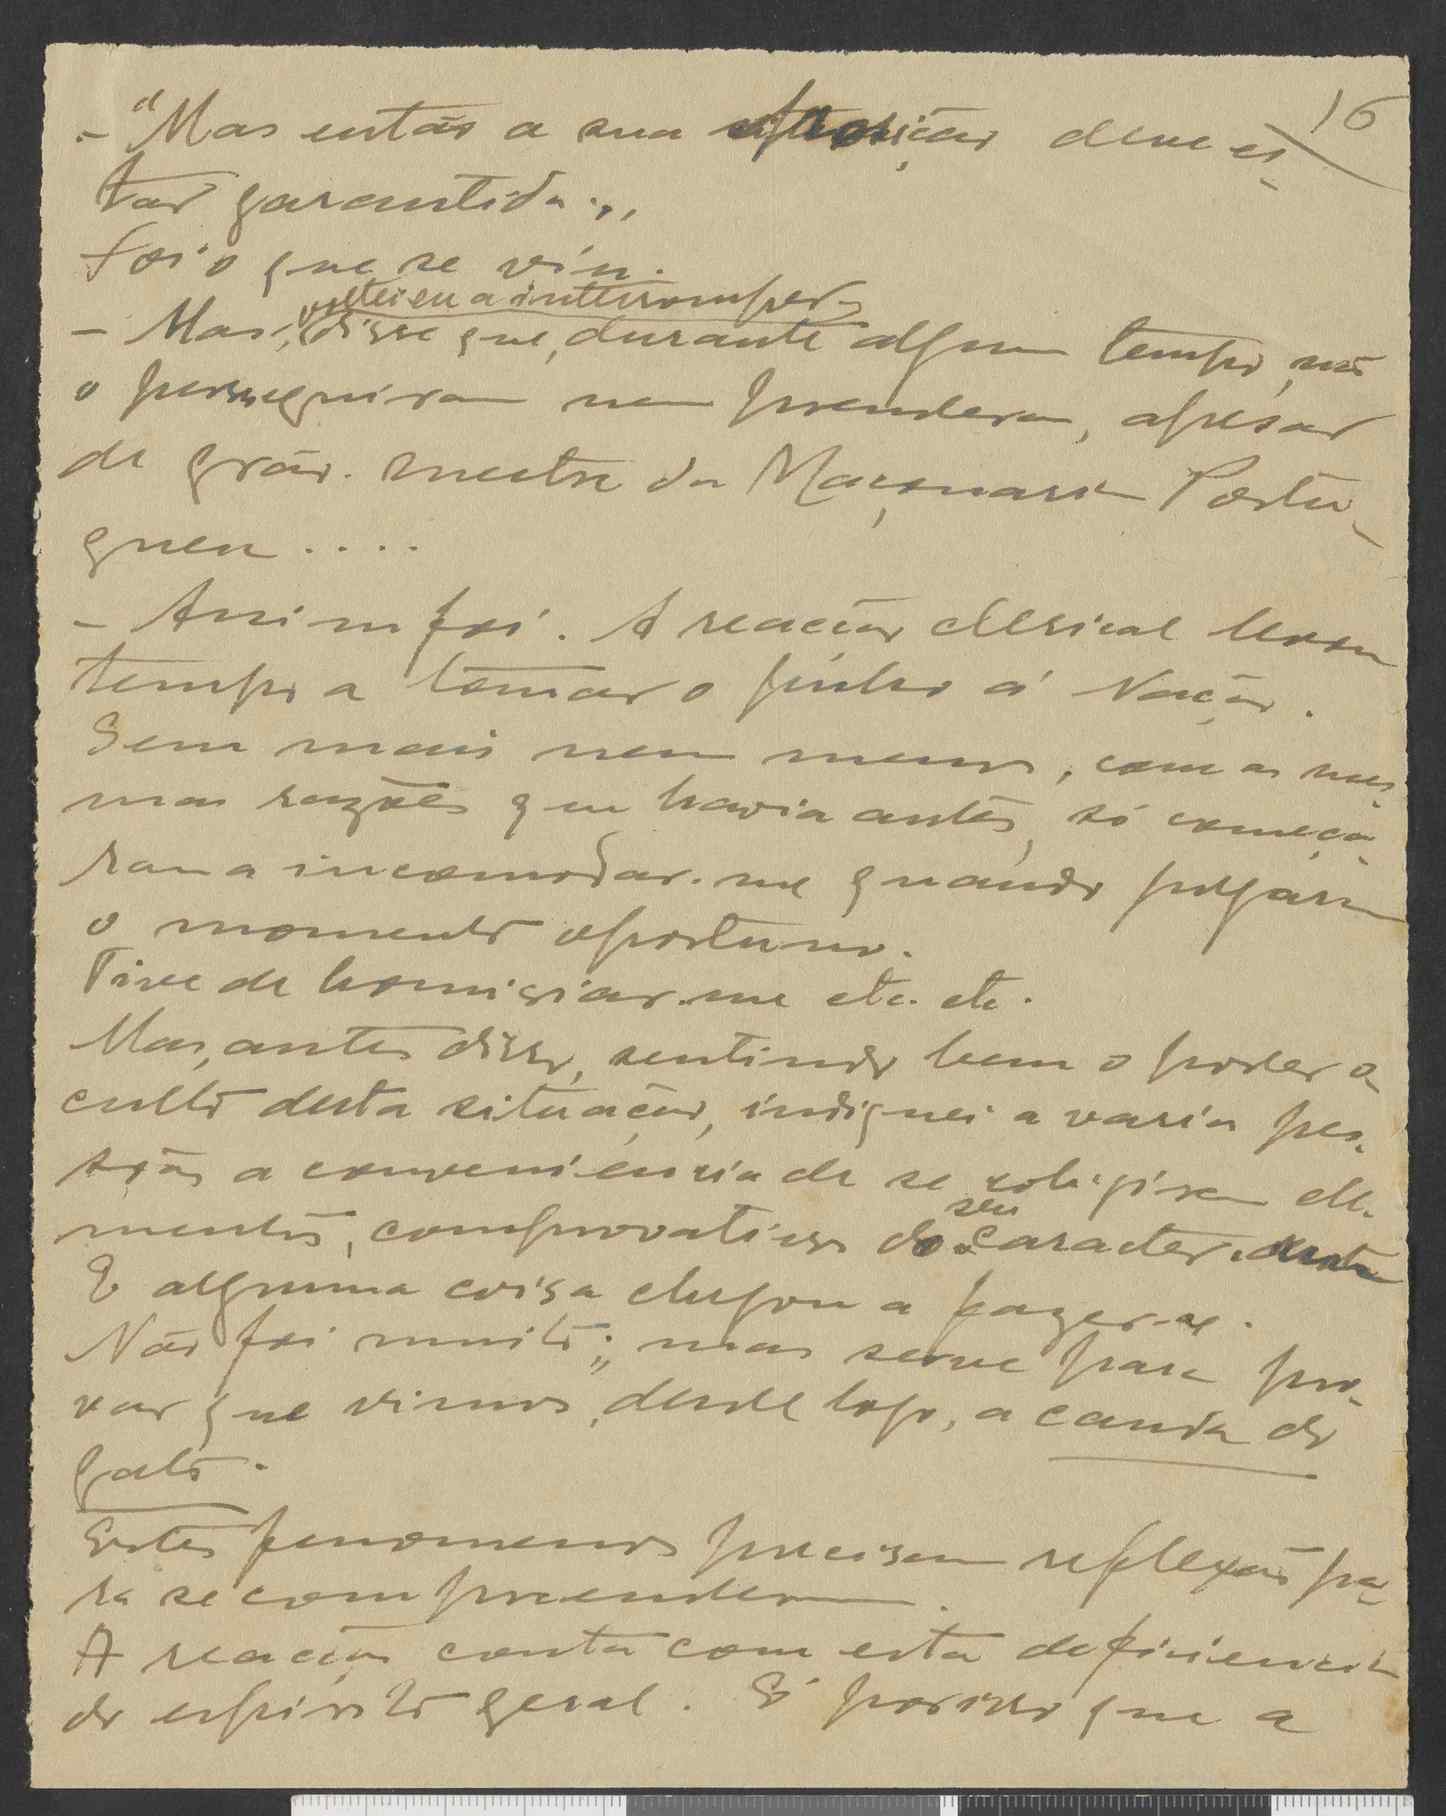 16
- "Mas então a sua situação deve es-
tar garantida.,,
Foi o que se viu.
voltei eu a interromper,
- Mas, disse que, durante algum tempo, não
o perseguiram nem prenderam, apesar
de grão-mestre da Maçonaria Portu-
guesa....
- Assim foi. A reacção clerical levou
tempo a tomar o pulso á Nação.
Sem mais nem menos, com as mes-
mas razões que havia antes, só começá-
ram a incomodar-me quando julgaram
o momento oportuno.
Tive de homisiar-me etc. etc.
Mas, antes disso, sentindo bem o poder o-
culto desta situação, indiquei a varias pes-
soas a conveniencia de se coligirem ele-
seu
mentos, comprovativos do caracter.
E alguma coisa chegou a fazer-se.
Não foi muito; mas serve para pro-
var que vimos, desde logo, a cauda do
gato.
Estes fenomenos precisam reflexão pa-
ra se compreenderem.
A reacção conta com esta deficiencia
do espirito geral. É por isso que a